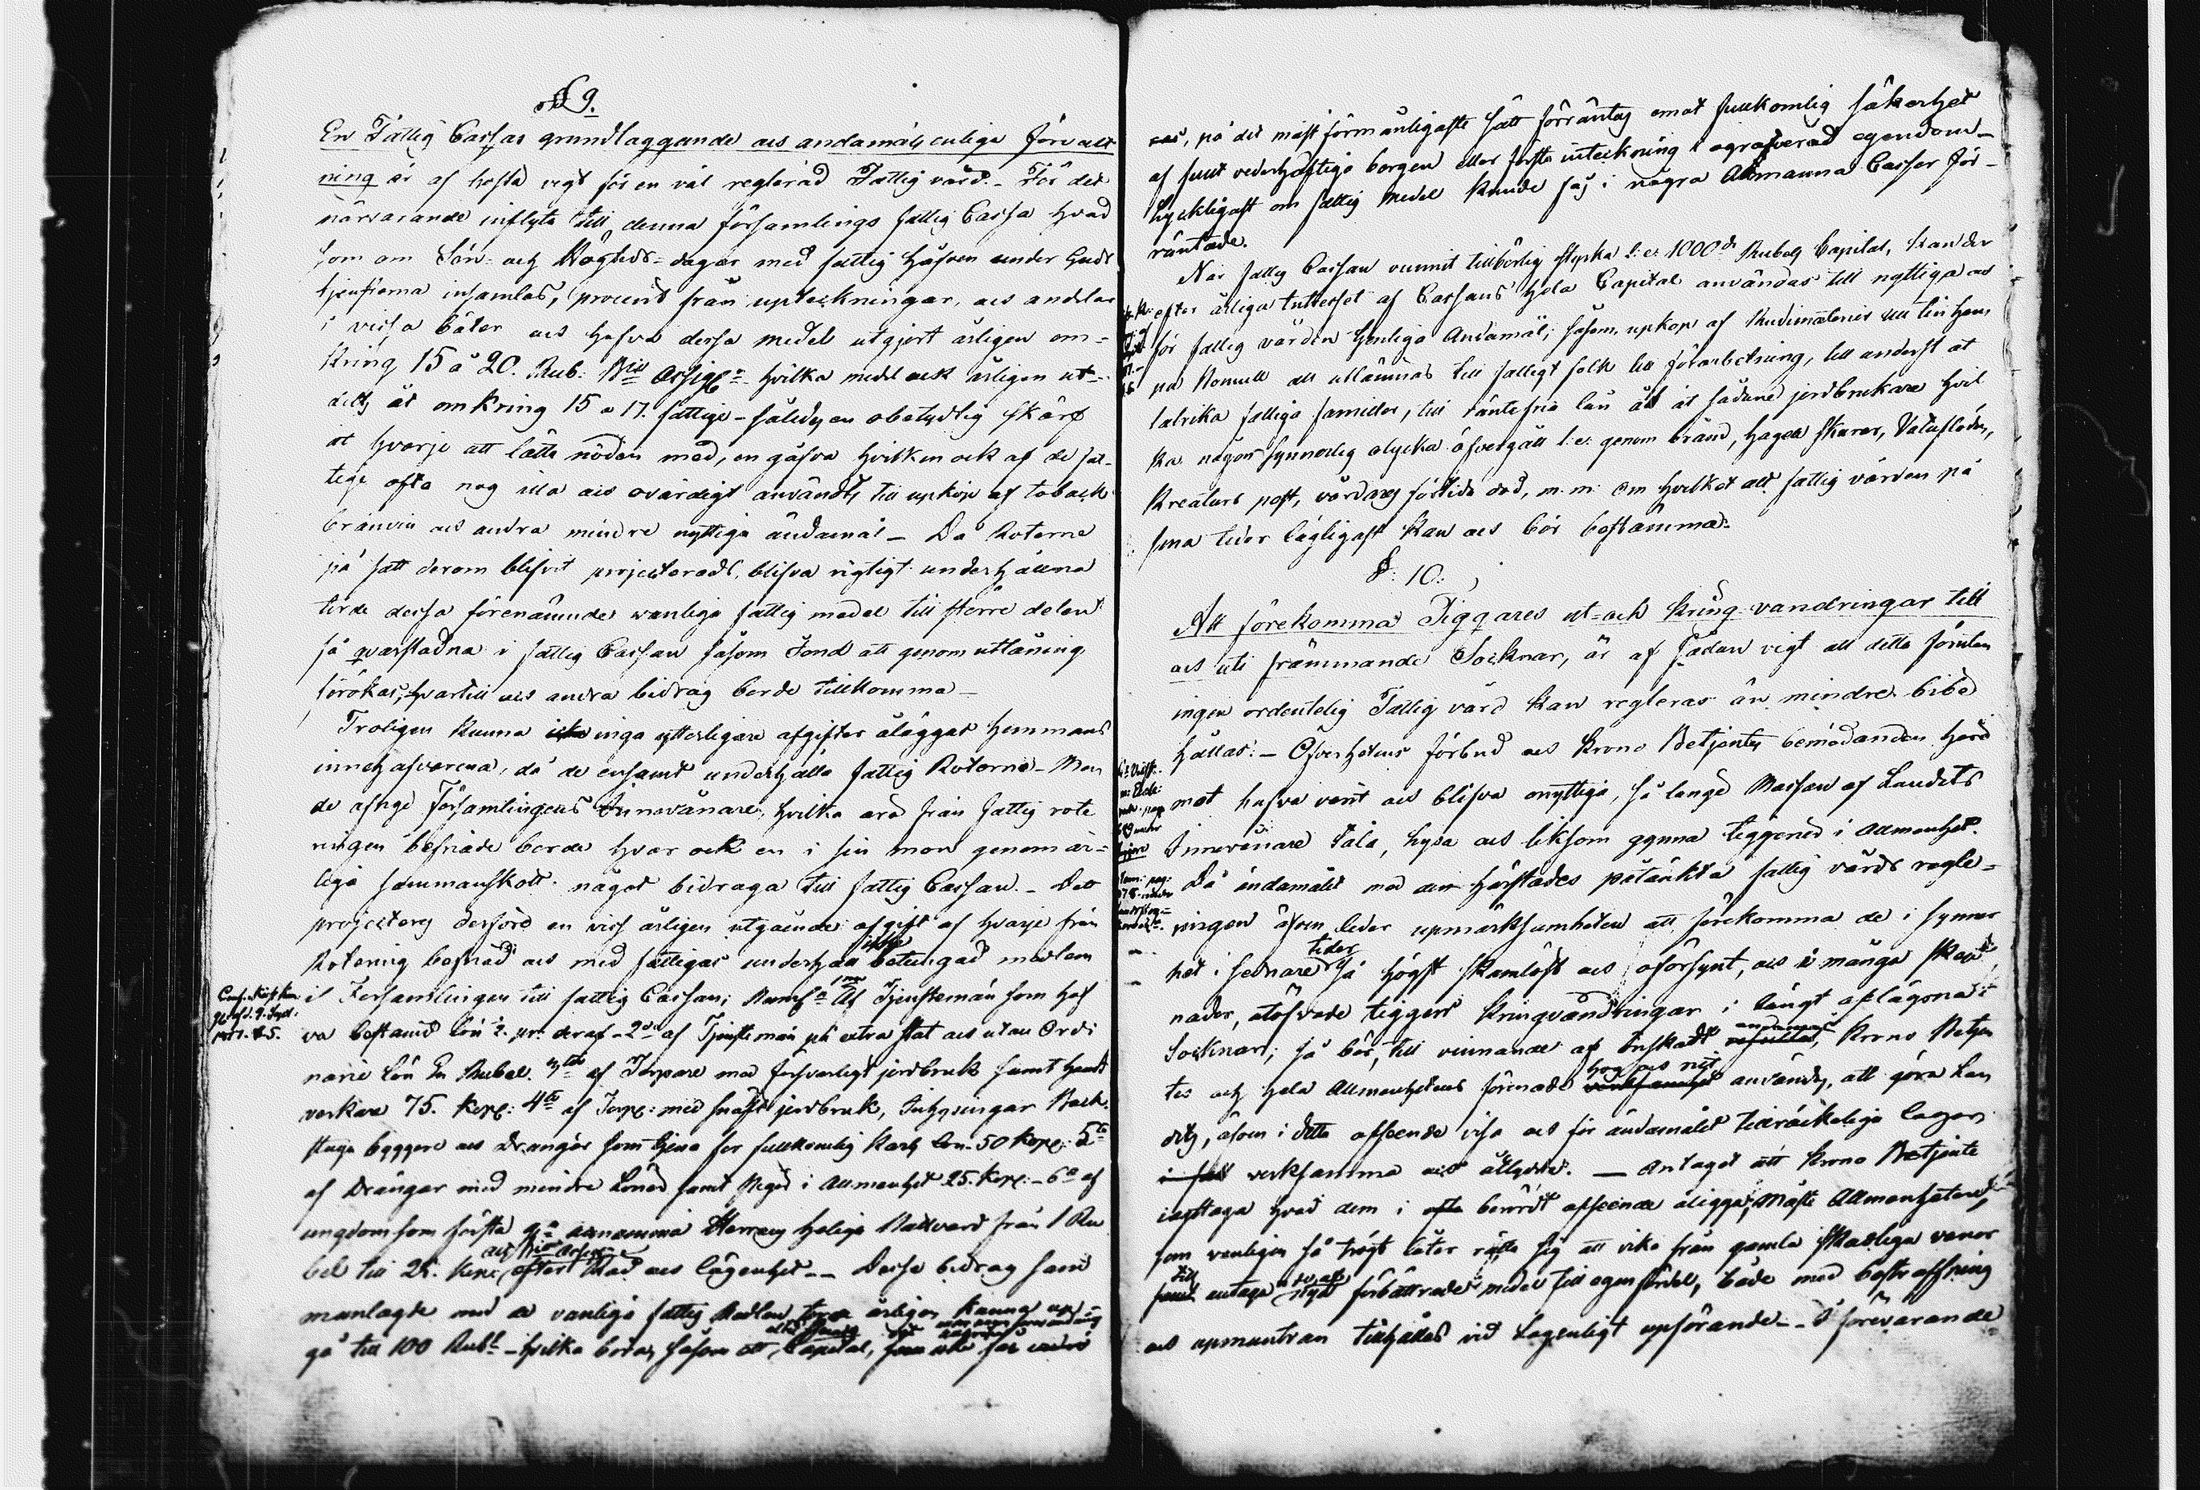 § 9.
En Fattig Cassas grundläggande och andamåls enliga förvalt-
ning är af högsta vigt för en väl reglerad Fattig vård. - För det
närvarande inflyta till denna församlings fattig Cassa hvad
som om Sön- och Högtids-dagar med fattig håfven under Guds
tjensterna insamlas, procent från upteckningar, och andelar
i vissa böter och hafva dessa medel utgjort årligen om-
kring 15 a 20. Rub. Bco Assign. hvilka medel ock årligen ut-
delts åt omkring 15 a 17. fattige - således en obetydlig skärf
åt hvarje att lätta nöden med, en gåfva hvilken ock af de fat-
tige ofta nog illa och ovärdigt användts till upköp af toback
bränvin och andra mindre nyttiga ändamål - Då Roterne
på sätt derom blifvit projecterade, blifva rigtigt underhållna
torde dessa förenämnde vanliga fattig medel till större delen
få qvarstadna i fattig Cassan såsom Fond att genom utlåning
förökas, hvartill och andra bidrag borde tillkomma -
Troligen kunna inga ytterligare afgifter åläggas hemmans
innehafvarena, då de ensamt underhålla fattig Roterne - Men
de öfrige Församlingens Innevånare, hvilka äro från fattig rote
ringen befriade borde hvar ock en i sin mon genom år-
liga sammanskott något bidraga till fattig Cassan. - Det
projecteras derföre en viss årligen utgående afgift af hvarje från
Rotering befriad och med fattigas underhåll icke betungad medlem
i Församlingen till fattig Cassan; Namn. 1mo Af Tjensteman som haf
va bestämd lön 2. pr. deraf - 2do af Tjensteman på extra stat och utan Ordi
narie lön En Rubel. 3tio af Torpare med försvarligt jordbruk samt Handt
verkare 75. Kop: 4to af Torp: med smått jordbruk, Inhysingar Back-
stuga byggere och Drängar som tjena för fullkomlig Karls lön - 50 Kop: 5to
af Drängar med mindre Löner samt Pigor i Allmänhet 25. Kop: - 6o af
ungdom som första gn annamma Herrans Heliga Nattvard från 1 Ru
bel till 25. Kop: efter råd och lägenhet - - Dessa bidrag sam
manlagde med de vanliga fattig Medlen torde årligen kunna up-
gå till 100 Rubl - hvilka borde såsom ett Capital,
Conf.
ces, på det mäst förmånligaste sätt förräntas emot fullkomlig säkerhet
af sunt vederhäftiga borgen eller första inteckning i ograverad egendom -
Lyckligast om fattig Medel kunde få i några Allmänna Cassor för-
räntade.
När fattig Cassan vunnit tillbörlig styrka l: ex: 1000de Rubels Capital, kan der
efter årliga Intresset af Cassans hela Capital användas till nyttiga och
för fattig vården henliga Andamål; såsom upköp af Rudimaterier
på Bomull att utlämnas till fattigt folk till förarbetning, till understöd åt
talrika fattiga familler, till räntefria lån åt sådane jordbrukare hvil
ka någon synnerlig olycka öfvergått l: ex: genom brand, hagel skurar, Vatuflöden,
Kreaturs pest, vårdnas förtida död, m: m: Om hvilket allt fattig vården på
sina tider lägligast kan och bör bestämma.
§: 10:
Att förekomma Tiggares ut- och kring-vandringar till
och uti främmande Socknar, är af sådan vigt att detta förutan
ingen ordentelig Fattig vård kan regleras än mindre bibe
hållas: - Öfverhetens förbud och Krono Betjentes bemödanden här
mot hafva varit och blifva onyttiga, så länge Massan af Landets
Innevånare tåla, hysa och liksom gynna tiggeriet i Allmänhet.
Då ändamålet med den härstädes påtänkta fattig vårds regle-
ringen äfven leder upmärksamheten att förekomma de i synner
het i sednare tider så högst skamlöst och oförsynt, och i många skep
nader, utöfvade tiggeri kringvandringar i långt aflägsna
Socknar; så bör, till vinnande af önskadt ändamål, Krono Betjen
tes och hela Allmänhetens förenade håg och nit användas, att göra Lan
dets, äfven i detta afseende visa och för ändamålet tillräckeliga lagar,
verksamma och åtlydde. — Antaget att Krono Betjente
iagttaga hvad dem i berördt afseende åligger, måste Allmänheten,
som vanligen så trögt låter råtta sig att vika från gamla skadliga vanor
till antaga förbättrade medel till egen fördel, både med bestraffning
och upmuntran tillhållas vid Lagenligt upförande - - I förevarande